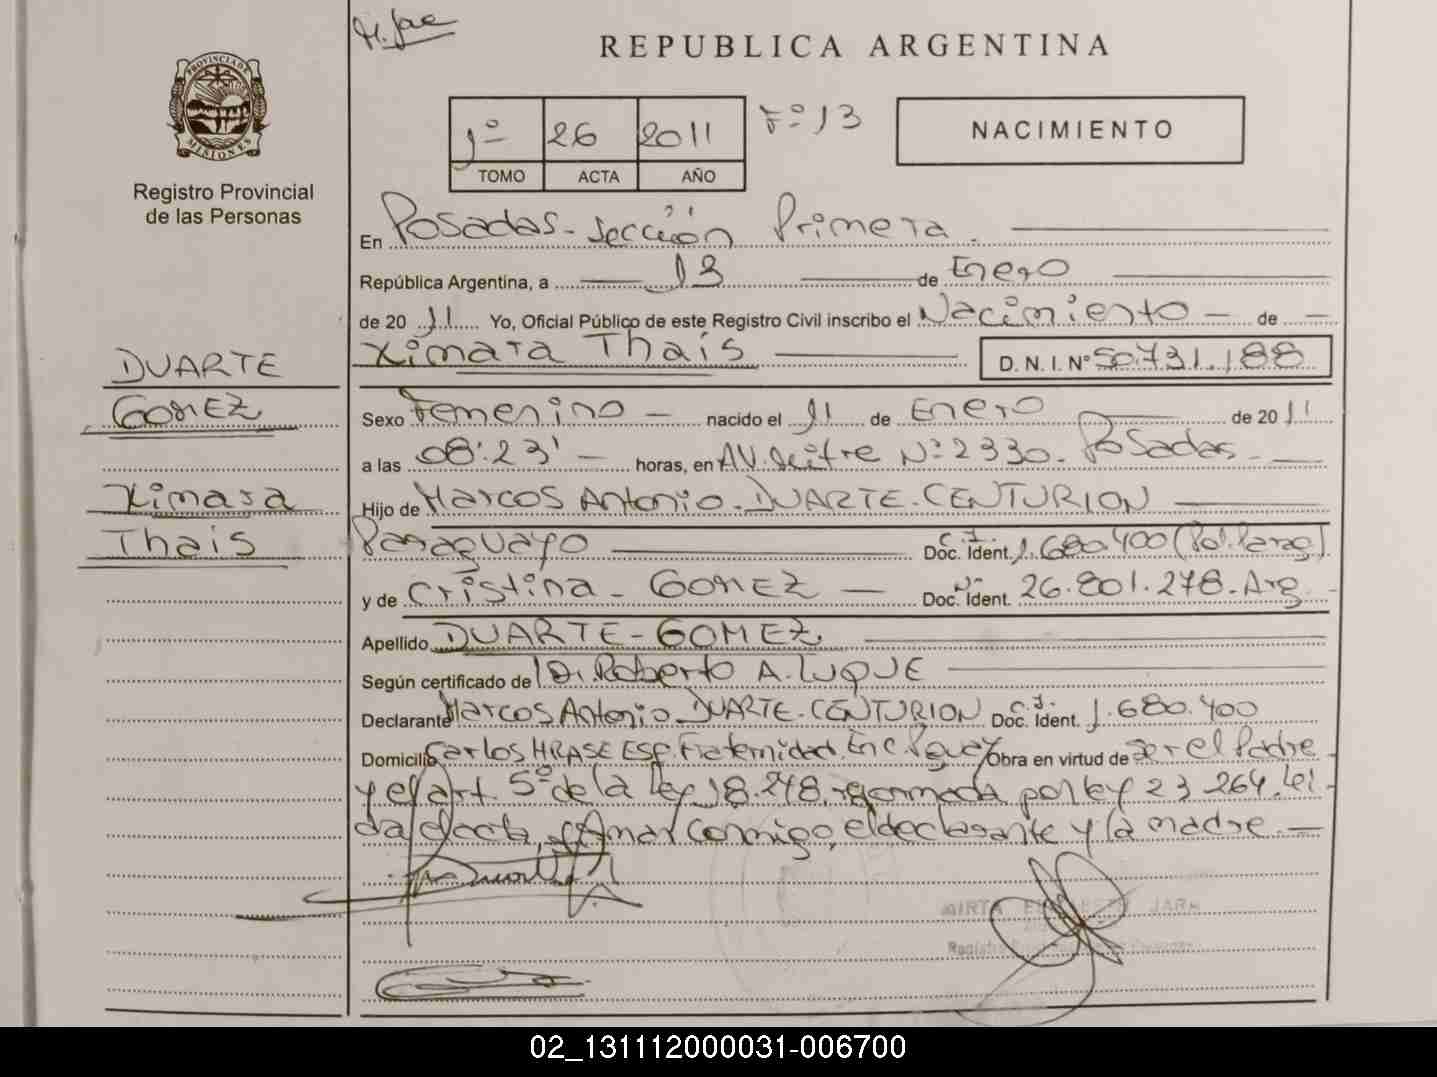 REPUBLICA ARGENTINA
PROVINCIA DE MISIONES
Registro Provincial
de las Personas
1º 26 2011 Fº 13
TOMO ACTA AÑO
NACIMIENTO
En Posadas - Sección Primera.
República Argentina, a 13 de Enero
de 2011 Yo, Oficial Público de este Registro Civil inscribo el Nacimiento - de -
Ximara Thais D.N.I. Nº 50.731.188
DUARTE
GOMEZ
Ximara
Thais
Sexo Femenino - nacido el 11 de Enero de 2011
a las 08:23' - horas, en AV. Mitre Nº 2330. Posadas. -
Hijo de Marcos Antonio - DUARTE - CENTURION
Paraguayo C.I. Doc. Ident. 1.680.400 (Pol. Parag)
y de Cristina - GOMEZ - Doc. Ident. Nº 26.801.278 - Arg.
Apellido DUARTE - GOMEZ
Según certificado de Dr. Roberto A. LUQUE
Declarante Marcos Antonio DUARTE - CENTURION C.I. Doc. Ident. 1.680.400
Domicilio Carlos Fraternidad. Enc. Obra en virtud de Ser el Padre
y el art. 5º de la Ley 18.248, reformada por ley 23.264. Lei
da el acta, firman conmigo, el declarante y la madre. -
MIRTA ELIZABETH JARA
02_131112000031-006700